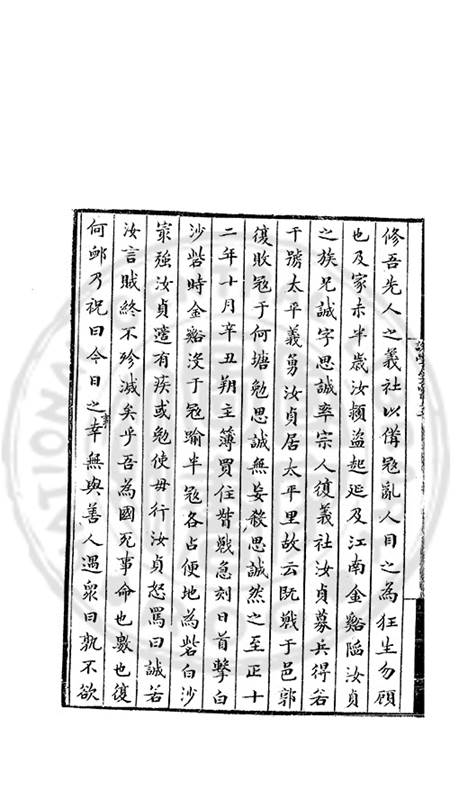 修吾先人之義社以備冦亂人目之為狂生勿顧
也及家未半歲汝頴盜起延及江南金谿陷汝貞
之族兄誠字思誠率宗人復義社汝貞募兵得若
干號太平義勇汝貞居太平里故云既戰于邑郭
復敗冦于何塘勉思誠無妄殺思誠然之至正十
二年十月辛丑朔主簿買住督戰急刻日首擊白
沙砦時金谿沒于冦踰半冦各占便地為砦白沙
最强汝貞遘有疾或勉使毋行汝貞怒罵曰誠若
汝言賊終不殄滅矣乎吾為國死事命也數也復
何卹乃祝曰今日之事幸無與善人遇衆曰孰不欲